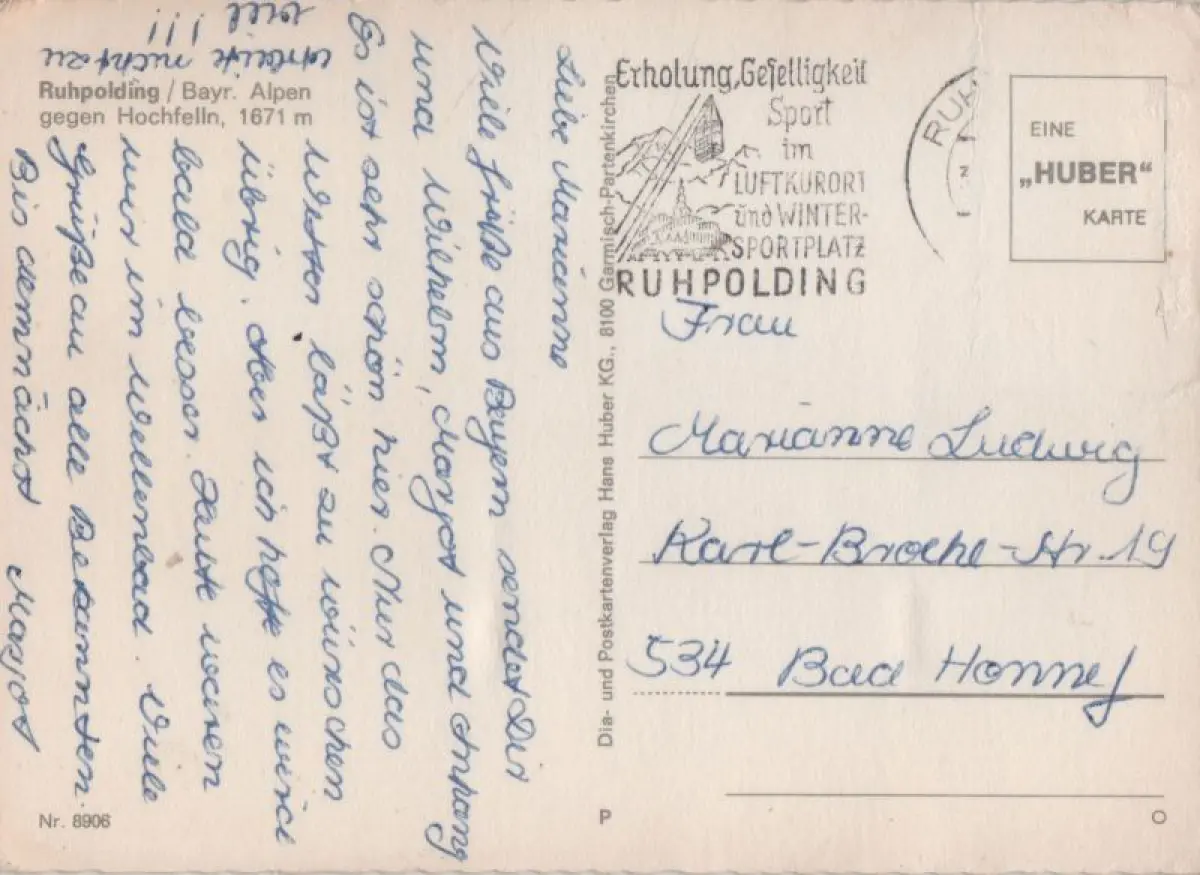 Ruhpolding / Bayr. Alpen
gegen Hochfelln, 1671 m
Liebe Marianne
Viele Grüße aus Bayern sendet Dir
und Wilhelm, Margot und Anhang
Es ist sehr schön hier. Nur das
Wetter läßt zu wünschen
übrig. Aber ich hoffe es wird
bald besser. Heute waren
wir im Wellenbad. Viele
Grüße an alle Bekannten.
Bis demnächst Margot
arbeite nicht zu
viel !!!
Nr. 8906
Dia- und Postkartenverlag Hans Huber KG., 8100 Garmisch-Partenkirchen
Erholung, Geselligkeit
Sport
im
LUFTKURORT
und WINTER-
SPORTPLATZ
RUHPOLDING
RUH
EINE
„HUBER“
KARTE
Frau
Marianne Ludwig
Karl-Broel-Str. 19
534 Bad Honnef
P
O